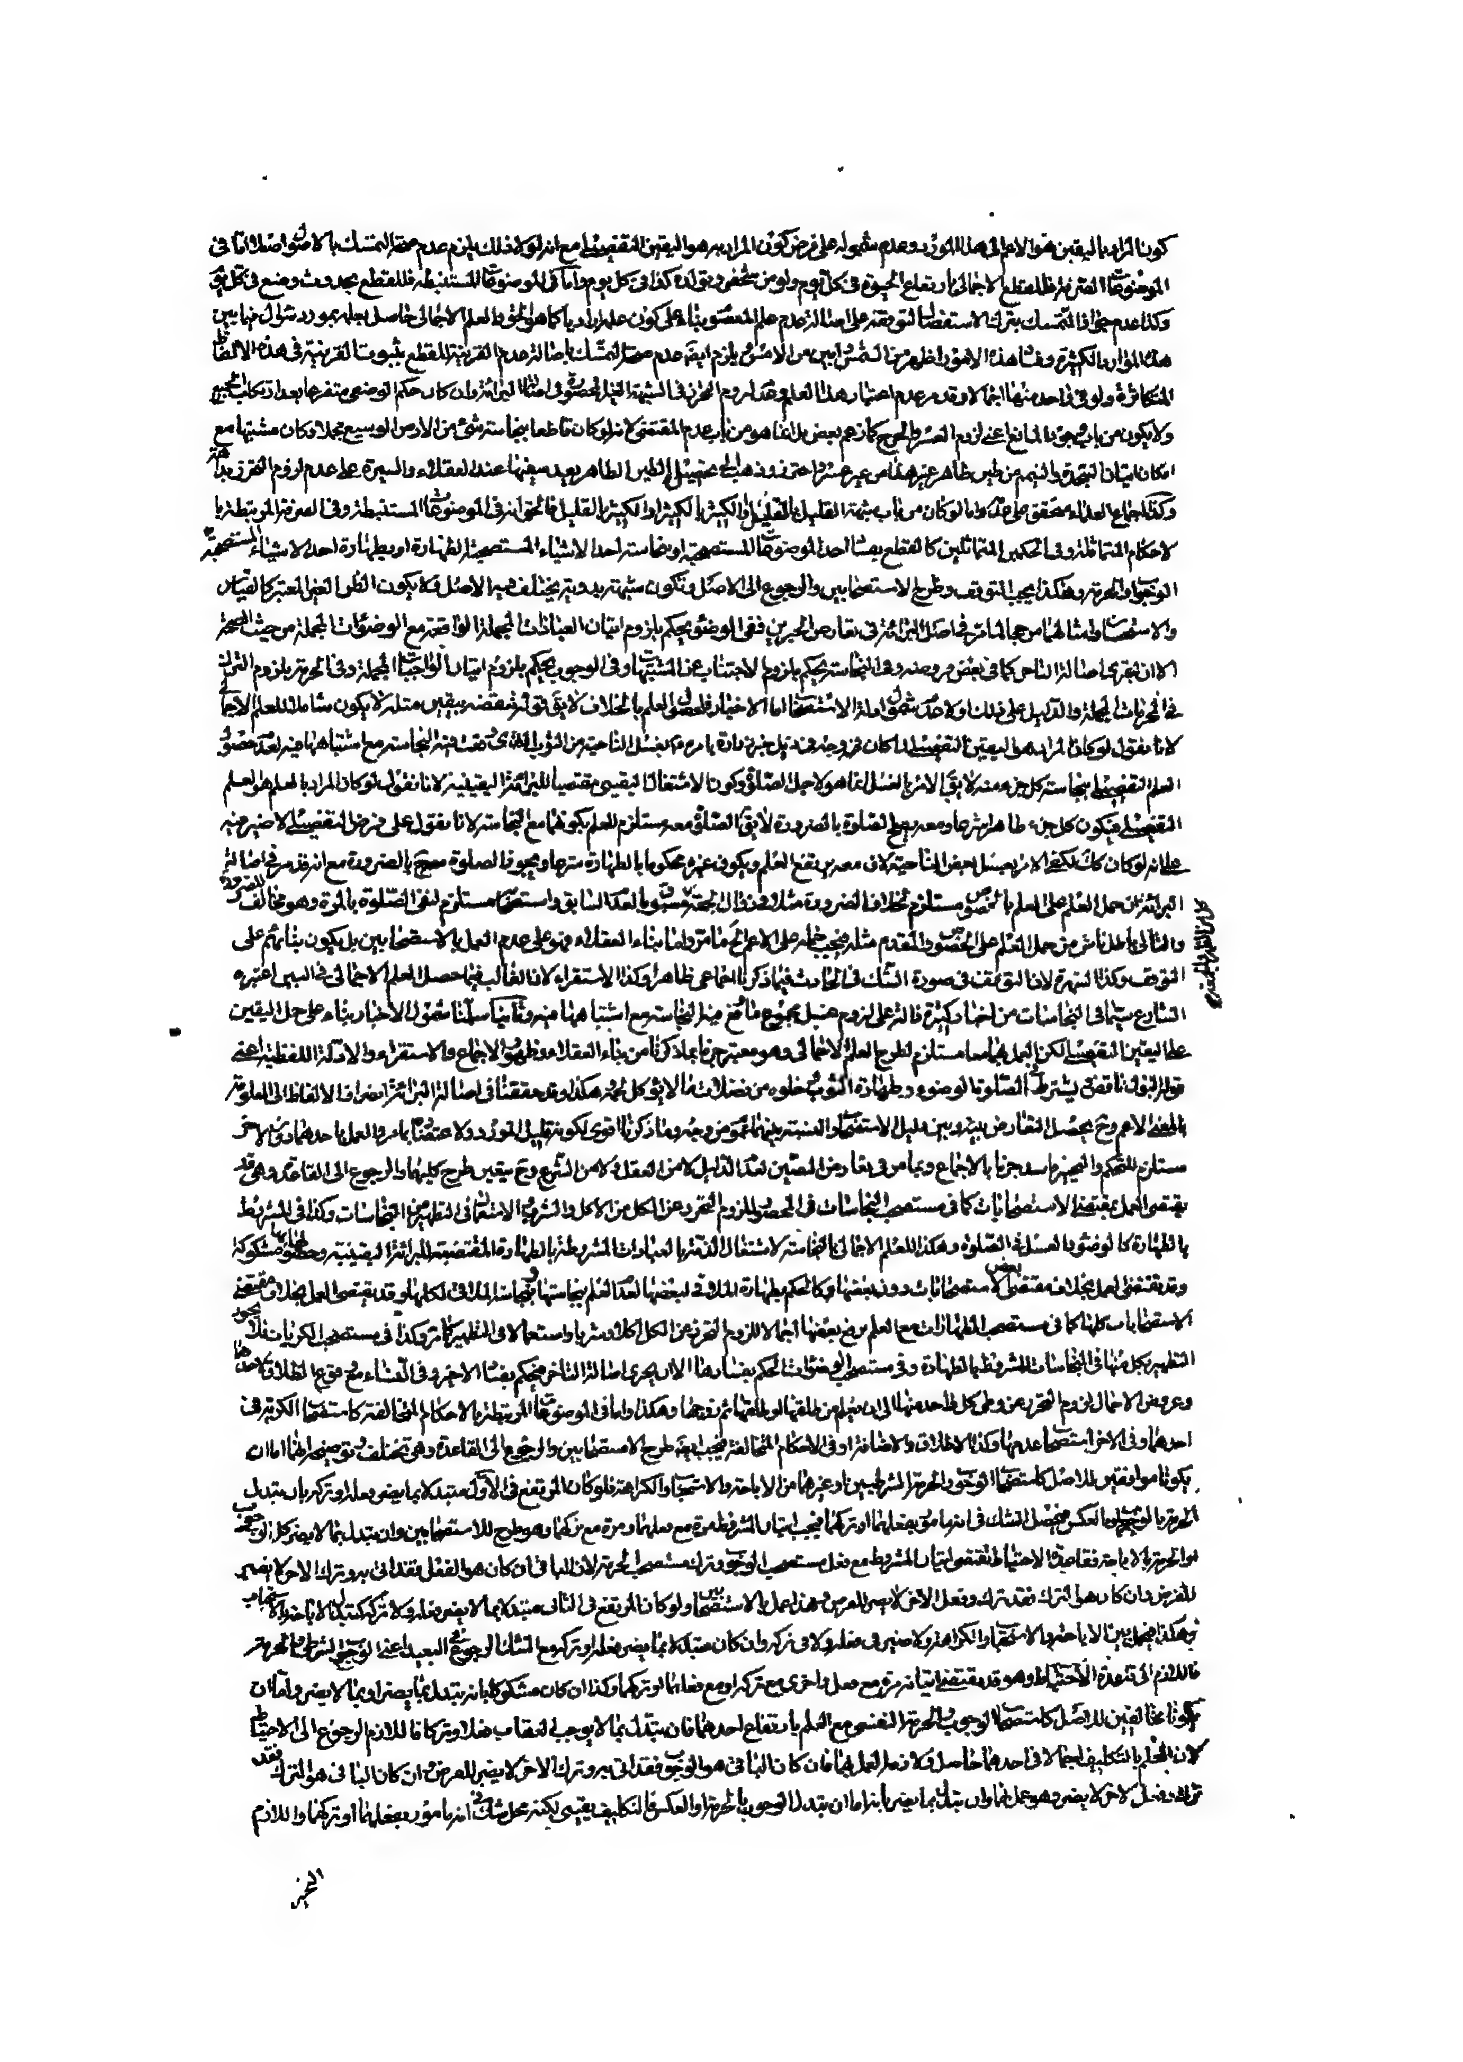 كون المراد باليقين هو الاعم الى هذا المورد وعدم شموله على فرض كون المراد به هو اليقين التفصيلى مع انه لولا ذلك يلزم عدم صحة التمسك بالاصول اصلا اما فى
الموضوعات الصرفة فللقطع الاجمالى بارتفاع الحيوة فى كل يوم ولو من شخص وتولده كذا فى كل يوم واما فى الموضوعات المستنبطة فللقطع بحدوث وضع فى كل
وكذا عدم جواز التمسك بترك الاستفصال لتوقفه على اصالة عدم علم المعصوم بناء على كون علمه اراديا كما هو الحق والعلم الاجمالى حاصل بعلمه بمورد سؤال فيما بين
هذه الموارد الكثيرة وفساد هذه الامور اظهر من الشمس وابين من الامس ويلزم ايضا عدم صحة التمسك باصالة عدم القرينة للقطع بثبوت القرينة فى هذه الالفاظ
المتكاثرة ولو فى واحد منها اجمالا وقد مر عدم اعتبار هذا العلم وعدم لزوم التحرز فى الشبهة الغير المحصورة فى اصالة البرائة وان كان حكم الوضعى متفرعا بعد ارتكاب الجميع
ولا يكون من باب وجود المانع اعنى لزوم العسر والحرج كما زعم بعض بل انما هو من باب عدم المقتضى لانه لو كان قاطعا بنجاسة شئ من الارض الوسيع مجملا وكان مشتبها مع
امكان اتيان السجدة والتيمم من طين طاهر غير هذا من غير عسر واحتمزوذهب الى تحصيل الطين الطاهر يعد سفيها عند العقلاء والسيرة على عدم لزوم التحرز بداهة
وكذا اجماع العلماء محقق على ذلك واما لو كان من باب شبهة القليل بالقليل او الكثير بالكثير او الكثير بالقليل فالحق انه فى الموضوعات المستنبطة وفى الصرفة المرتبطة با
لاحكام المتماثلة وفى الحكمين المتماثلين كالقطع بفساد احد الموضوعات المستصحبة او نجاسة احد الاشياء المستصحبة الطهارة او بطهارة احد الاشياء المستصحبة
الوجوب او الحرمة وهكذا يجب التوقف وطرح الاستصحابين والرجوع الى الاصل وتكون شبهة بدوية يختلف فيه الاصل فلا يكون الظن الغير المعتبر كالقياس
والاستحسان وامثالهما مرجحا لما مر فى اصل البرائة فى تعارض الخبرين ففى الوضع يحكم بلزوم اتيان العبادات المجملة الواقعة مع الوضوءات المجملة من حيث الصحة
الا ان يجرى اصالة التاخر كما فى بعض فروضه وفى النجاسة يحكم بلزوم الاجتناب عن المشتبهات وفى الوجوب يحكم بلزوم اتيان الواجبات المجملة وفى الحرمة بلزوم الترك
فى المحرمات المجملة والدليل على ذلك اولا عدم شمول ادلة الاستصحاب اما الاخبار فلحصول العلم بالخلاف لا يقال قوله تنقضه بيقين مثله لا يكون شاملا للعلم الاجمالى
لانا نقول لو كان المراد هو اليقين التفصيلى لما كان فى وجه فى ذيل خبر زرارة يا مره بغسل الناحية من الثوب الذى وقعت فيه النجاسة مع اشتباهها فيه لعدم حصول
العلم التفصيلى بنجاسة كل جزء منه لا يقال الامر بالغسل انما هو لاجل الصلوة وكون الاشتغال اليقينى مقتضيا للبرائة اليقينية لانا نقول لو كان المراد بالعلم هو العلم
التفصيلى فيكون كل جزء طاهرا شرعا ومعه يصح الصلوة بالضرورة لا يقال الصلوة معه مستلزم للعلم بكونها مع النجاسة لانا نقول على فرض التفصيلى لا ضير فيه
على انه لو كان كك لكفى الامر بغسل بعض الناحية لان معه يرتفع العلم ويكون غيره محكوما بالطهارة شرعا ويجوز الصلوة معه بالضرورة مع انه قد مر فى اصالة
البرائة ان حمل العلم على العلم بالخصوص مستلزم لخلاف الضرورة مثلا فى زوال لحية مسبوق بالعدم السابق واستصحابه مستلزم لنفى الصلوة بالمرة وهو مخالف للضرورة
والتالى باطل ناش من حمل العلم على الخصوص والمقدم مثله فيجب حمله على الاعم لما مر واما بناء العقلاء فهو على عدم العمل بالاستصحابين بل يكون بنائهم على
التوقف وكذا الشهرة لان التوقف فى صورة الشك فى الحادث فيما ذكر اجماعى ظاهرا وكذا الاستقراء لان الغالب فيما حصل العلم الاجمالى فى البين اعتبره
الشارع سيما فى النجاسات من اخبار كثيرة دالة على لزوم غسل مجموع ما وقع فيه النجاسة مع اشتباهها فيه وثانيا سلمنا شمول الاخبار بناء على حمل اليقين
على اليقين التفصيلى لكن العمل بهما معا مستلزم لطرح العلم الاجمالى وهو معتبر جزما بما ذكرنا من بناء العقلاء وظهور الاجماع والاستقراء والادلة اللفظية اعنى
قوله البول ناقض ويشترط فى الصلوة الوضوء وطهارة الثوب وخلوه من فضلات ما لا يؤكل لحمه وهكذا وقد حققنا فى اصالة البرائة انصراف الالفاظ الى المعلومة
بالمعنى الاعم وح يحصل التعارض بينه وبين دليل الاستصحاب والنسبة بينهما عموم من وجه وما ذكرنا اقوى لكونه قليل المورد ولاعتضاده بما مر والعمل باحدهما دون الاخر
مستلزم للتحكم والتخيير فاسد جزما بالاجماع وبما مر فى تعارض النصين لعدم الدليل لا من العقل ولا من الشرع وح يتعين طرح كليهما والرجوع الى القاعدة وهى قد
يقتضى العمل بمقتضى الاستصحابات كما فى مستصحب النجاسات فى المحصور للزوم التحرز عن الكل من الاكل والشرب والاستعمال فى التطهير من النجاسات وكذا فى المشروط
بالطهارة كالوضوء والغسل فى الصلوة وهكذا للعلم الاجمالى بالنجاسة لاشتغال الذمة بالعبادات المشروطة بالطهارة المقتضية للبرائة اليقينية وحصولها بها مشكوك
وقد يقتضى العمل بخلاف مقتضى بعض الاستصحابات دون بعضها كالحكم بطهارة الملاقى لبعضها لعدم العلم بنجاستها ونجاسة الملاقى لكلها وقد يقتضى العمل بخلاف مقتضى
الاستصحابات كلها كما فى مستصحب الطهارات مع العلم برفع بعضها اجمالا للزوم التحرز عن الكل اكلا وشربا واستعمالا فى التطهير كما مر وكذا فى مستصحب الكريات فلا يجوز
التطهير بكل منها فى النجاسات المشروط بالطهارة وفى مستصحب الوضوءات الحكم بفسادها الا ان يجرى اصالة التاخر فيحكم بفساد الاخير وفى النساء مع وقوع الطلاق لاحدها
وعروض الاجمال لزوم التحرز عن وطى كل واحد منها الى ان يعلم من طلقها او يطلقها ثم زوجها وهكذا واما فى الموضوعات المرتبطة بالاحكام المتخالفة كاستصحاب الكرية فى
احدهما وفى الاخر استصحاب عدمها وكذا الاطلاق والاضافة او فى الاحكام المتخالفة فيجب ايضا طرح الاستصحابين والرجوع الى القاعدة وهى تختلف وتوضيحه انهما اما ان
يكونا موافقين للاصل كاستصحاب الوجوب والحرمة الشرطيين او غيرهما من الاباحة والاستحباب والكراهة فلو كان المرتفع فى الاول متبدلا بما يضر فعله او تركه بان متبدل
الحرمة بالوجوب او بالعكس فيحصل الشك فى انه مامور بفعلهما او تركهما فيجب اتيان المشروط مرة مع فعلهما ومرة مع تركهما وهو طرح للاستصحابين وان تبدل بما لا يضر كالوجوب
او الحرمة بالاباحة فقاعدة الاحتياط تقتضى اتيان المشروط مع فعل مستصحب الوجوب وترك مستصحب الحرمة لان الباقى ان كان هو الفعل فقد اتى به وترك الاخر لا يضر
للفرض وان كان هو الترك فقد ترك وفعل الاخر لا يضر للفرض وهذا عمل بالاستصحابين ولو كان المرتفع فى الثانى متبدلا بما لا يضر فعله ولا تركه كتبدل الاباحة بالاستحباب
وهكذا فيعمل بين الاباحة والاستحباب والكراهة ولا ضير فى فعله ولا فى تركه وان كان متبدلا بما يضر فعله او تركه مع الشك الوجوب البعيد اعنى الوجوب الشرطى والحرمة
فاللازم الى قاعدة الاحتياط وهو قد يقتضى اتيانه مرة مع فعل واخرى مع تركه او مع فعلهما او تركهما وكذا ان كان مشكوكا بانه يتبدل بما يضر او بما لا يضر واما ان
يكونا مخالفين للاصل كاستصحاب الوجوب والحرمة النفسى مع العلم بارتفاع احدهما فان تبدل بما لا يوجب العقاب فعلا وتركا فاللازم الرجوع الى الاحتياط
لان العلم بالتكليف اجمالا فى احدهما حاصل ولازمه العمل بهما فان كان الباقى هو الوجوب فقد اتى به وترك الاخر لا يضر للفرض وان كان الباقى هو الترك فقد
ترك وفعل الاخر لا يضر وهو عمل بهما وان تبدل بما يضر بانه اما ان يتبدل الوجوب بالحرمة او العكس فالتكليف يقينى لكنه محل شك فى انه مامور بفعلهما او تركهما واللازم